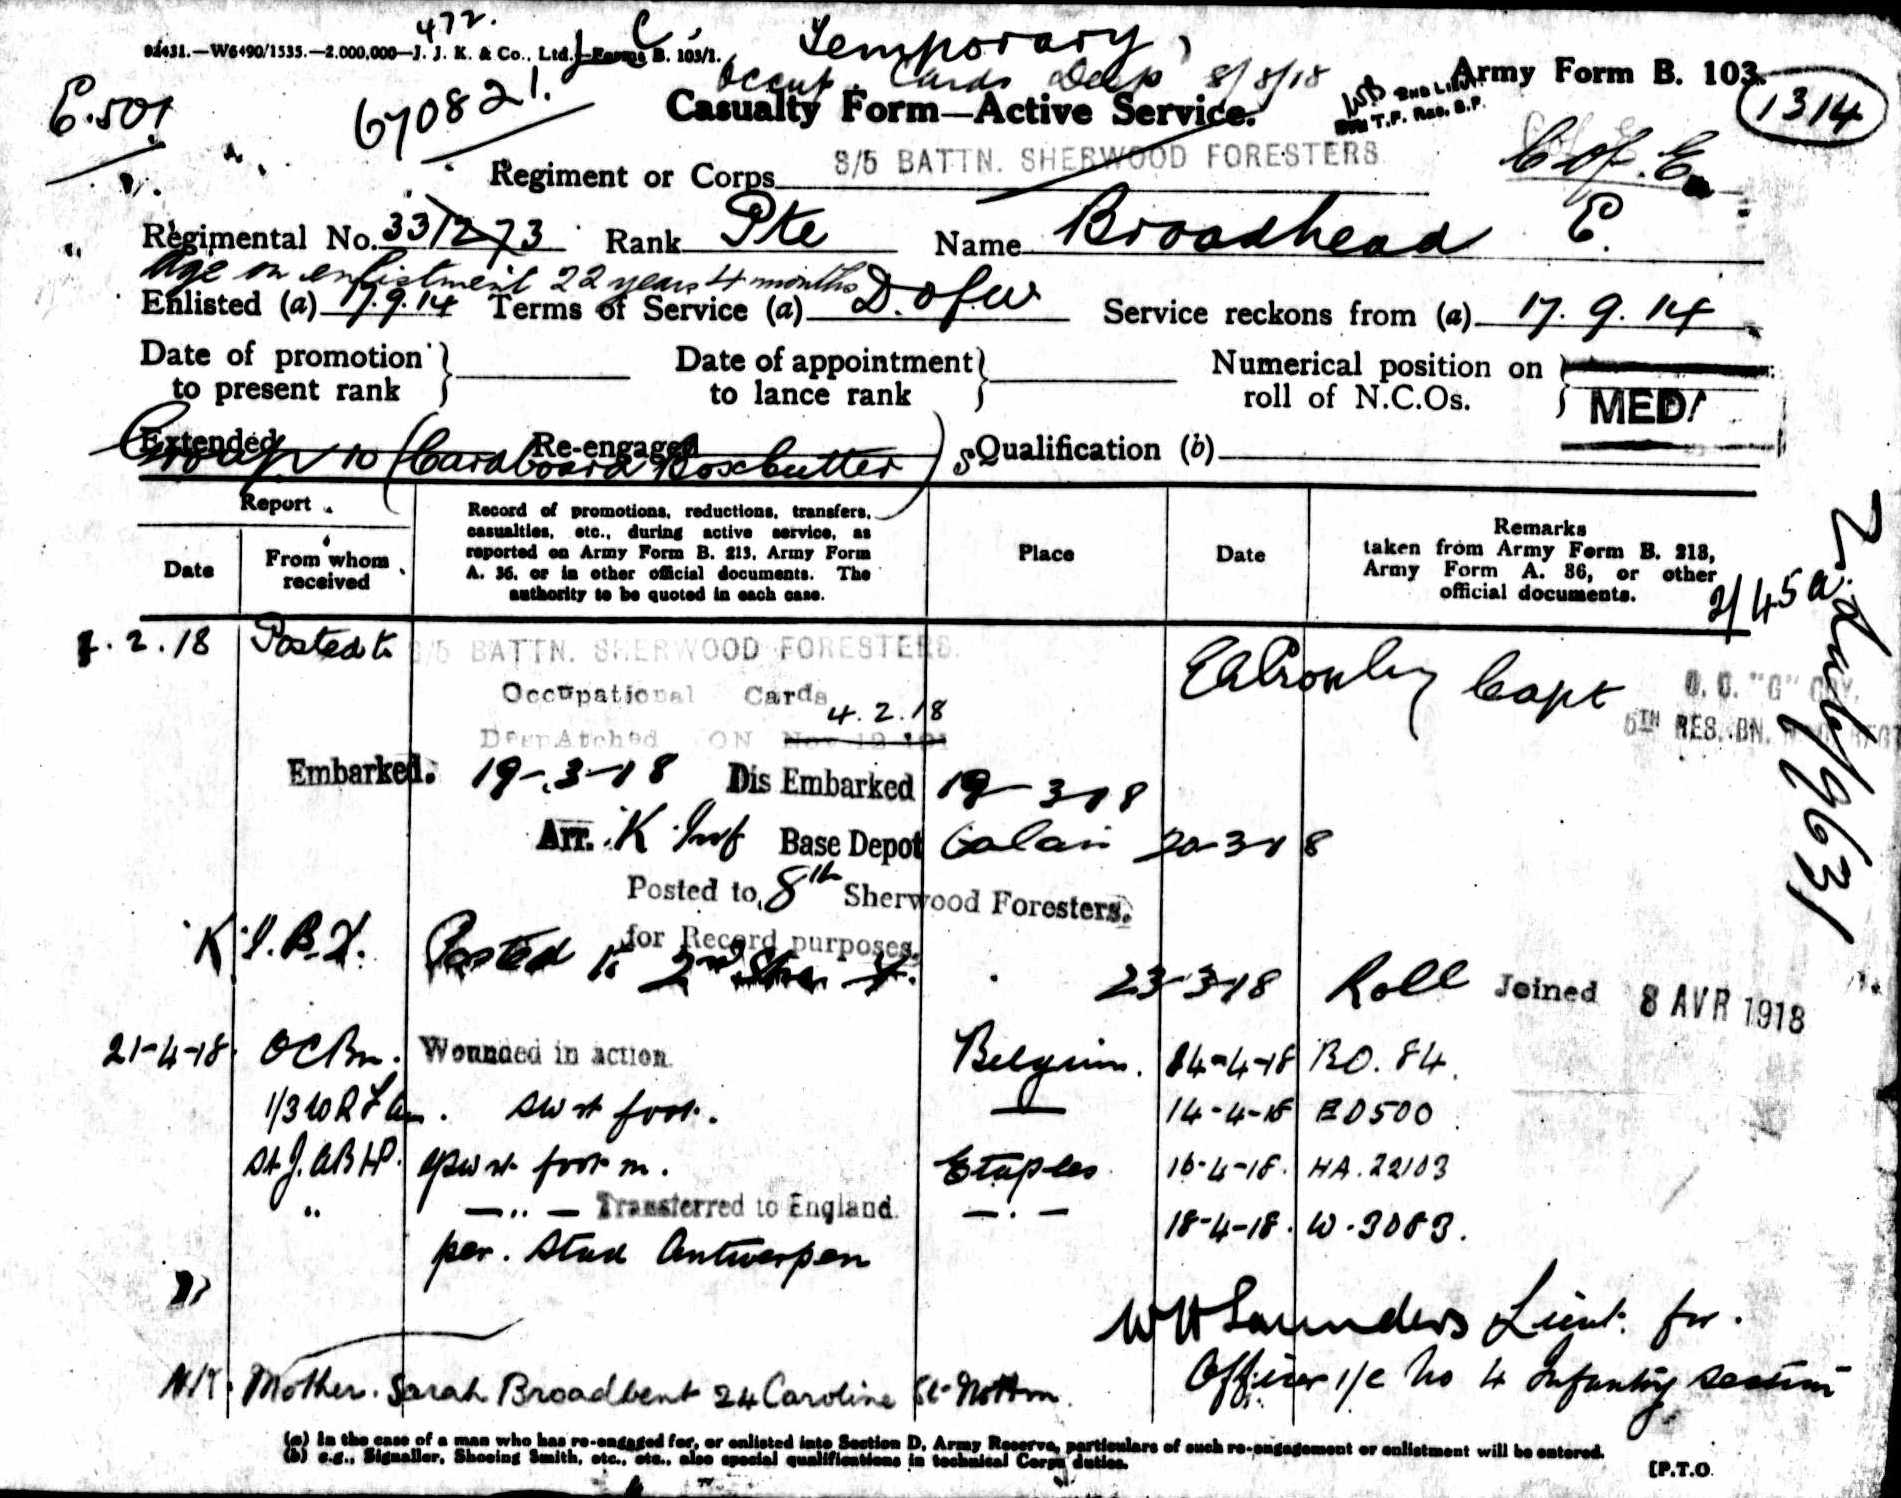 472.
92431.—W6490/1535.—2,000,000—J. J. K. & Co., Ltd. Forms B. 103/1.
Temporary
Occup. Cards Desp 8/8/18
Army Form B. 103.
1314
E.501
670821.
Casualty Form—Active Service.
2ND LIEUT
T.F. REC. S.P.
Regiment or Corps 3/5 BATTN. SHERWOOD FORESTERS
C of E.
Regimental No. 331273 Rank Pte Name Broadhead E.
Age on enlistment 22 years 4 months
Enlisted (a) 17.9.14 Terms of Service (a) D. of W Service reckons from (a) 17. 9. 14
Date of promotion to present rank
Date of appointment to lance rank
Numerical position on roll of N.C.Os.
MED/
Extended Re-engaged Qualification (b)
Group 10 (Cardboard Box Cutter)
Report
Date
From whom received
Record of promotions, reductions, transfers, casualties, etc., during active service, as reported on Army Form B. 213, Army Form A. 36, or in other official documents. The authority to be quoted in each case.
Place
Date
Remarks taken from Army Form B. 213, Army Form A. 36, or other official documents.
2/45a
.2.18 Posted to 3/5 BATTN. SHERWOOD FORESTERS.
Capt
O. C. "G" COY.
5TH RES. BN.
Occupational Cards
4.2.18
Despatched ON Nov 19 191
Embarked. 19-3-18 Dis Embarked 19-3-18
Arr. K Inf Base Depot Calais 20-3-18
Posted to 8th Sherwood Foresters.
for Record purposes.
K.I.B.D. Posted to 2nd Sher F. 23-3-18 Roll Joined 8 AVR 1918
21-4-18 OC Bn. Wounded in action Belgium. 14-4-18 BO. 84.
1/3 W R F Am. SW rt foot. — 14-4-18 ED500
St J. ABH. GSW rt foot m. Etaples 16-4-18. HA. 22103
" —"— Transferred to England —.— 18-4-18. W.3083.
per. Stad Antwerpen
W H Saunders Lieut. for.
Officer i/c No 4 Infantry Section
N/K. Mother. Sarah Broadbent 24 Caroline St Nottm.
(a) In the case of a man who has re-engaged for, or enlisted into Section D, Army Reserve, particulars of such re-engagement or enlistment will be entered.
(b) e.g., Signaller, Shoeing Smith, etc., etc., also special qualifications in technical Corps duties.
[P.T.O.